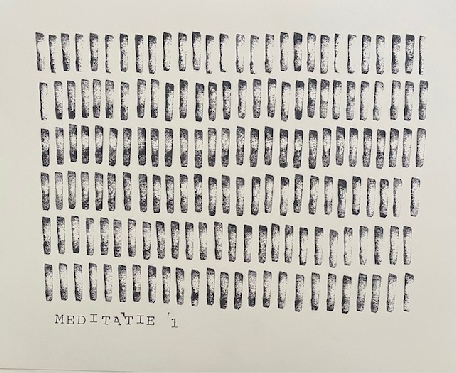 MEDITATIE '1